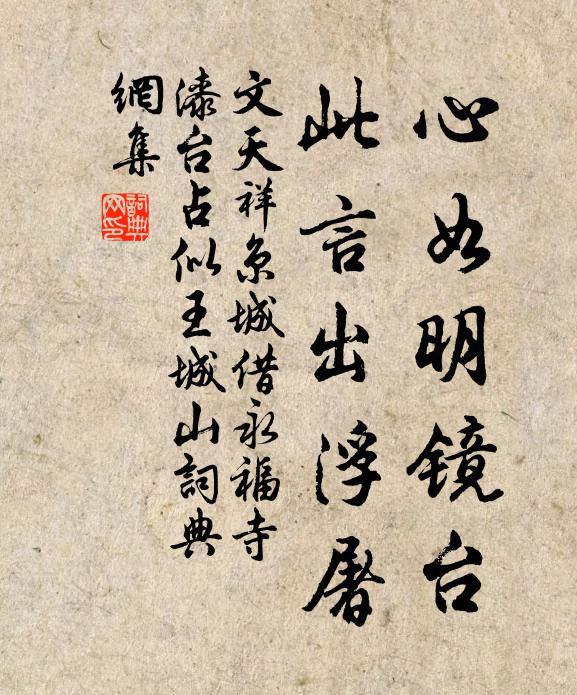 心如明镜台
此言出浮屠
文天祥京城借永福寺
漆台占似王城山詞典
網集
詞典
网印